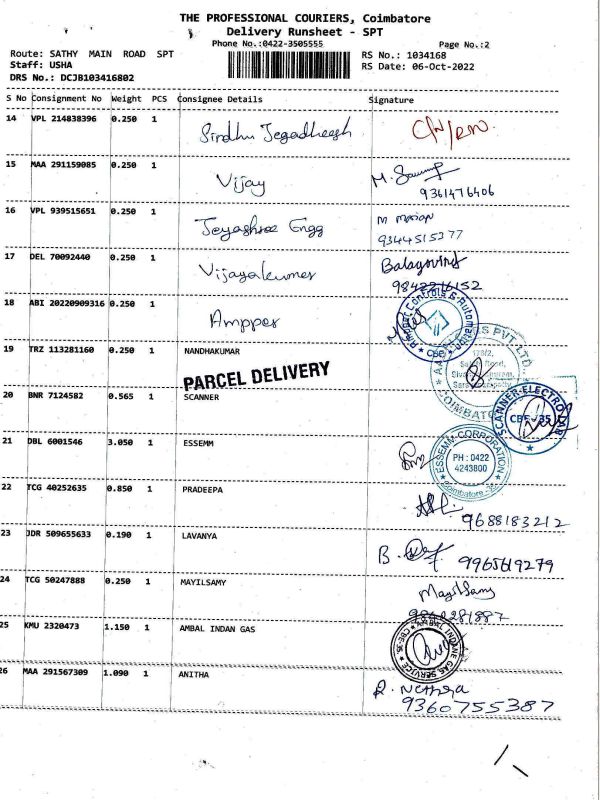 THE PROFESSIONAL COURIERS, Coimbatore
Delivery Runsheet - SPT
Phone No.:0422-3505555
Page No.:2
Route: SATHY MAIN ROAD SPT
RS No.: 1034168
Staff: USHA
RS Date: 06-Oct-2022
DRS No.: DCJB103416802
S No Consignment No Weight PCS Consignee Details Signature
14 VPL 214838396 0.250 1 Sindhu Jegadheesh
15 MAA 291159085 0.250 1 Vijay
9361476406
16 VPL 939515651 0.250 1 Jeyashree Engg
9344515377
17 DEL 70092440 0.250 1 Vijayakumar Balagovind
9842216152
18 ABI 20220909316 0.250 1 Amppes
19 TRZ 113281160 0.250 1 NANDHAKUMAR
PARCEL DELIVERY
20 BNR 7124582 0.565 1 SCANNER
SCANNER-ELECTRO
21 DBL 6001546 3.050 1 ESSEMM
ESSEMM CORPORATION
PH : 0422
4243800
Coimbatore
22 TCG 40252635 0.850 1 PRADEEPA
9688183212
23 JDR 509655633 0.190 1 LAVANYA
9965619279
24 TCG 50247888 0.250 1 MAYILSAMY Mayilsamy
25 KMU 2320473 1.150 1 AMBAL INDAN GAS
AMBAL INDANE GAS SERVICE
26 MAA 291567309 1.090 1 ANITHA
R. Nethra
9360755387